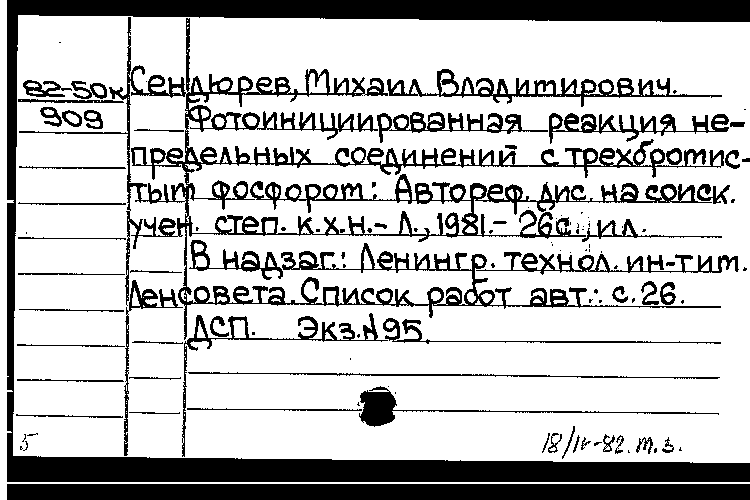 82-50к Сендюрев, Михаил Владимирович.
909 Фотоинициированная реакция не-
предельных соединений с трехбромис-
тым фосфором: Автореф. дис. на соиск.
учен. степ. к.х.н.- Л., 1981.- 26с., ил.
В надзаг.: Ленингр. технол. ин-т им.
Ленсовета. Список работ авт.: с. 26.
ДСП. Экз.№95.
5 18/IV-82. т.з.